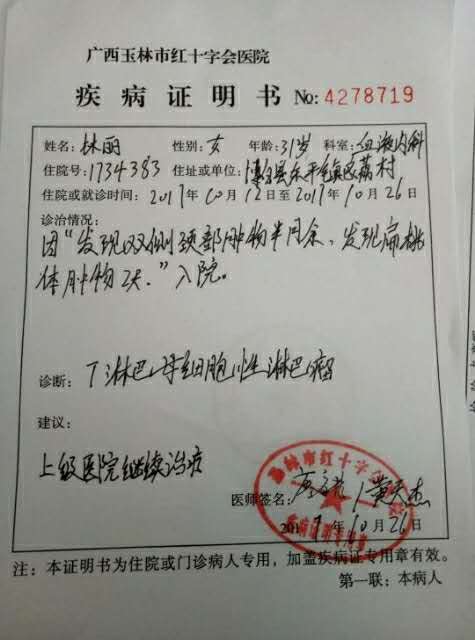 广西玉林市红十字会医院
疾病证明书 No:4278719
姓名:林丽 性别:女 年龄:31岁 科室:血液内科
住院号:1734383 住址或单位:博白县东平镇区荔村
住院或就诊时间:2017年10月12日至2017年10月26日
诊治情况:
因“发现双侧颈部肿物半月余、发现扁桃
体肿物2天.”入院。
诊断: T淋巴母细胞性淋巴瘤
建议:
上级医院继续治疗
医师签名: 黄天杰
玉林市红十字会
疾病证明专用章
2017年10月26日
注:本证明书为住院或门诊病人专用,加盖疾病证专用章有效。
第一联:本病人